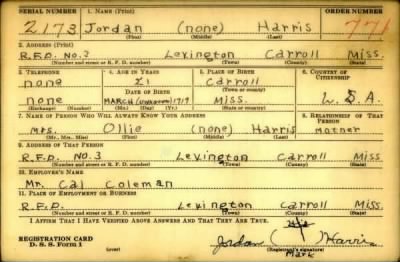 SERIAL NUMBER 1. NAME (Print) ORDER NUMBER
2173 Jordan (none) Harris 771
(First) (Middle) (Last)
2. ADDRESS (Print)
R.F.D. No.3 Lexington Carroll Miss.
(Number and street or R. F. D. number) (Town) (County) (State)
3. TELEPHONE 4. AGE IN YEARS 5. PLACE OF BIRTH 6. COUNTRY OF CITIZENSHIP
none 21 Carroll
DATE OF BIRTH (Town or county)
none MARCH (unknown) 1919 Miss. U.S.A.
(Exchange) (Number) (Mo.) (Day) (Yr.) (State or country)
7. NAME OF PERSON WHO WILL ALWAYS KNOW YOUR ADDRESS 8. RELATIONSHIP OF THAT PERSON
Mrs. Ollie (none) Harris Mother
(Mr., Mrs., Miss) (First) (Middle) (Last)
9. ADDRESS OF THAT PERSON
R.F.D. No.3 Lexington Carroll Miss
(Number and street or R. F. D. number) (Town) (County) (State)
10. EMPLOYER'S NAME
Mr. Cal Coleman
11. PLACE OF EMPLOYMENT OR BUSINESS
R.F.D. Lexington Carroll Miss.
(Number and street or R. F. D. number) (Town) (County) (State)
I AFFIRM THAT I HAVE VERIFIED ABOVE ANSWERS AND THAT THEY ARE TRUE.
His
REGISTRATION CARD Jordan ( ) Harris
D. S. S. Form 1 (over) (Registrant's signature)
Mark